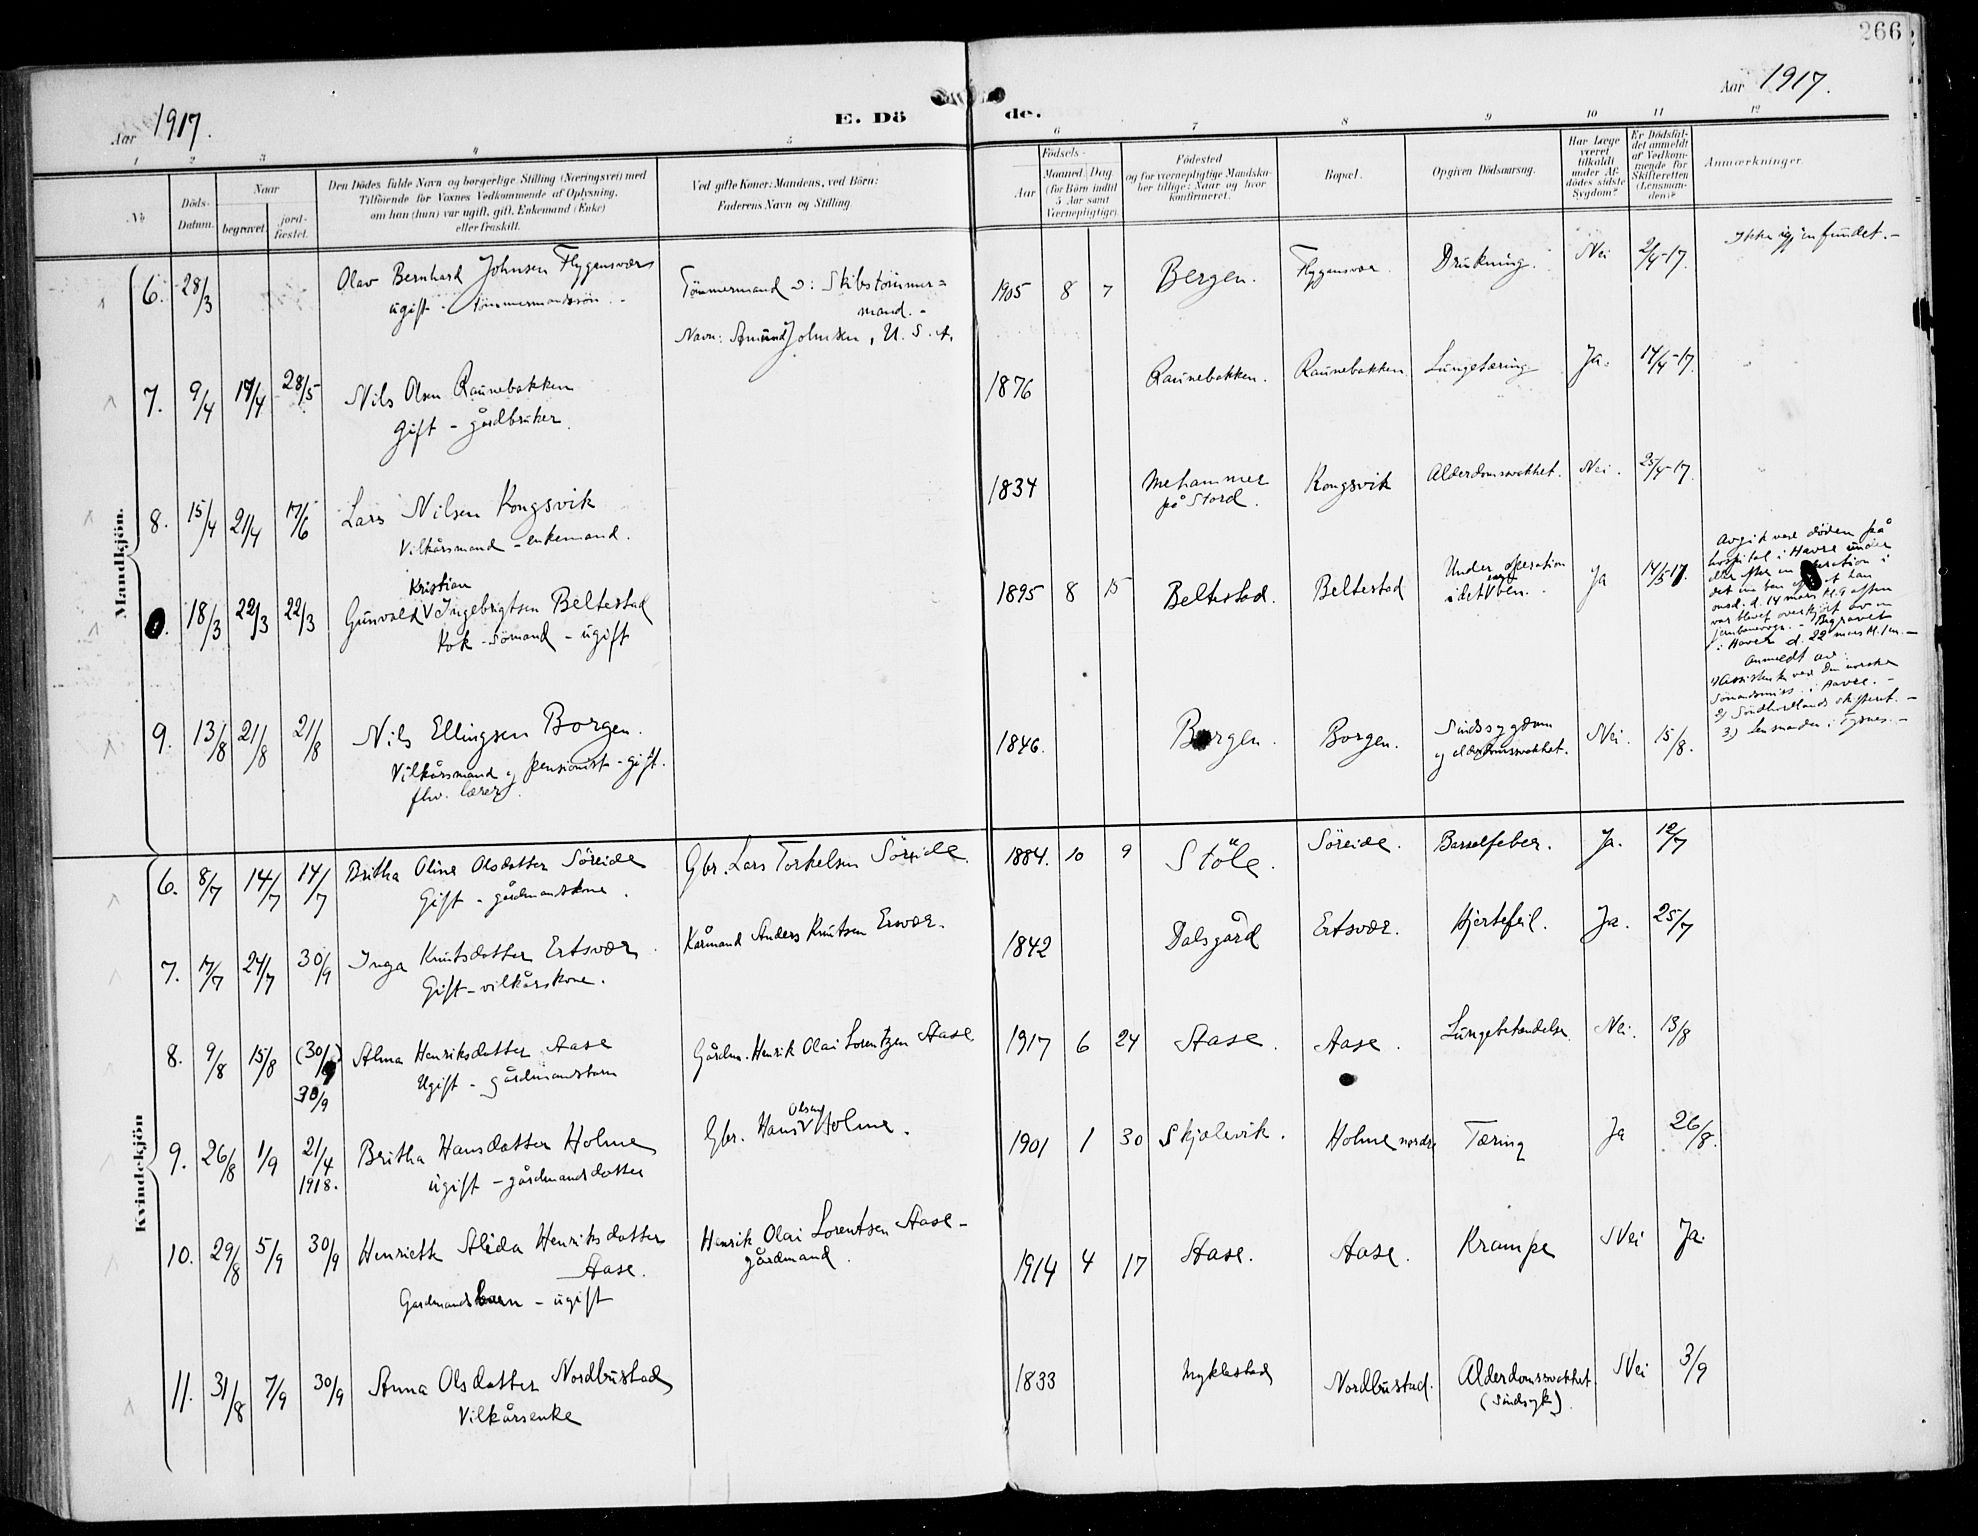 266
Aar 1917.
E. Dö de.
Aar 1917.
1 2 3 4 5 6 7 8 9 10 11 12
No
Döds-
Datum.
Naar
begravet.
jord-
fæstet.
Den Dödes fulde Navn og borgerlige Stilling (Næringsvei) med
Tilföiende for Voxnes Vedkommende af Oplysning,
om han (hun) var ugift, gift, Enkemand (Enke)
eller fraskilt.
Ved gifte Koner: Mandens, ved Börn:
Faderens Navn og Stilling.
Födsels-
Aar
Maaned
Dag
(for Börn indtil
5 Aar samt
Værnepligtige).
Födested
og for værnepligtige Mandska-
ber tillige: Naar og hvor
konfirmeret.
Bopæl.
Opgiven Dödsaarsag.
Har Læge
været
tilkaldt
under Af-
dödes sidste
Sygdom?
Er Dödsfal-
det anmeldt
af Vedkom-
mende for
Skifteretten
(Lensman-
den)?
Anmærkninger.
Mandkjön.
6. 28/3 Olav Bernhard Johnsen Flygansvær
ugift - tömmermandssön. -
Tömmermand ɔ: Skibstömmer=
mand. -
Navn: Amund Johnsen, U. S. A.
1905 8 7 Bergen. Flygansvær. Drukning. Nei 2/4-17. Ikke igjenfundet. -
7. 9/4 14/4 28/5 Nils Olsen Raunebakken
Gift - gårdbruker.
1876 Raunebakken. Raunebakken Lungetæring Ja. 14/4-17.
8. 15/4 21/4 17/6 Lars Nilsen Kongsvik
Vilkårsmand - enkemand.
1834 Mehammer
på Stord.
Kongsvik Alderdomssvakhet. Nei. 25/4-17.
18/3 22/3 22/3 Gunvald Kristian Ingebrigtsen Beltestad
Kok - sömand - ugift
1895 8 15 Beltestad. Beltestad Under operation
i det ene ben. Ja 14/5-17.
Avgik ved döden på
hospital i Havre under
eller efter en operation i
det ene ben
ond. d. 14 mars
var blevet overkjört av en
jernbanevogn. - Begravet
i Havre d. 22 mars
Anmeldt av:
1) Assistenten ved Den norske
Sömandsmis. i Havre. -
2) Söndhordlands skifteret. -
3) Lensmanden i Tysnes. -
9. 13/8 21/8 21/8 Nils Ellingsen Borgen.
Vilkårsmand og pensionist - gift.
fhv. lærer.
1846. Borgen. Borgen. Sindssygdom
og alderdomssvakhet. Nei. 15/8.
Kvindekjön
6. 8/7 14/7 14/7 Britha Oline Olsdatter Söreide
Gift - gårdmandskone.
Gbr. Lars Torkelsen Söreide.
1884. 10 9 Stöle. Söreide. Barselfeber. Ja. 12/7
7. 17/7 24/7 30/9 Inga Knutsdatter Ertsvær.
Gift - vilkårskone.
Kårmand Anders Knutsen Ersvær.
1842 Dalsgård Ertsvær. Hjertefeil. Ja. 25/7
8. 9/8 15/8 (30/9)
30/9
Alma Henriksdatter Aase
Ugift - gårdmandsbarn
Gårdm. Henrik Olai Lorentzen Aase
1917 6 24 Aase. Aase. Lungebetændelse. Nei. 13/8
9. 26/8 1/9 21/4
1918.
Britha Hansdatter Holme
ugift - gårdmandsdatter
Gbr. Hans Olsen Holme.
1901 1 30 Skjalevik. Holme nordre Tæring Ja 26/8.
10. 29/8 5/9 30/9 Henriette Alida Henriksdatter
Aase.
Gardmandsbarn - ugift
Henrik Olai Lorentsen Aase -
gårdmand.
1914 4 17 Aase. Aase. Krampe Nei Ja.
11. 31/8 7/9 30/9 Anna Olsdatter Nordbustad
Vilkårsenke
1833 Myklestad Nordbustad. Alderdomssvakhet
(sindsyk). Nei 3/9